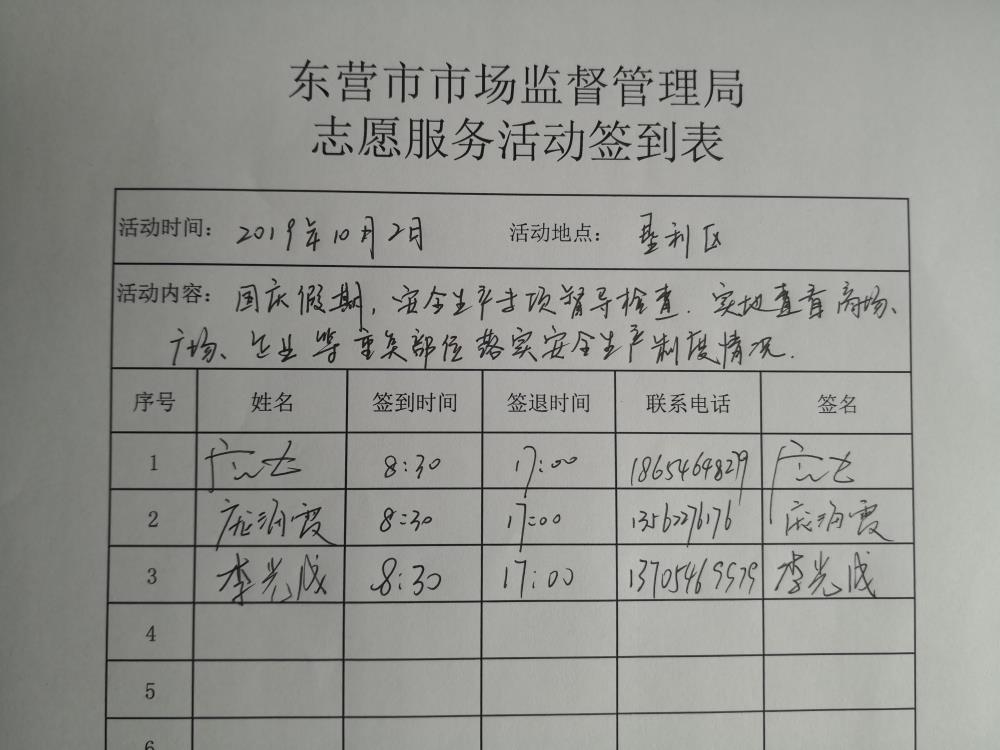 东营市市场监督管理局
志愿服务活动签到表
活动时间: 2019年10月2日 活动地点: 垦利区
活动内容: 国庆假期,安全生产专项督导检查.实地查看商场、
广场、企业等重点部位落实安全生产制度情况.
序号 姓名 签到时间 签退时间 联系电话 签名
1 8:30 17:00 1865464829
2 庞润霞 8:30 17:00 13562276176 庞润霞
3 李光成 8:30 17:00 13705469579 李光成
4
5
6